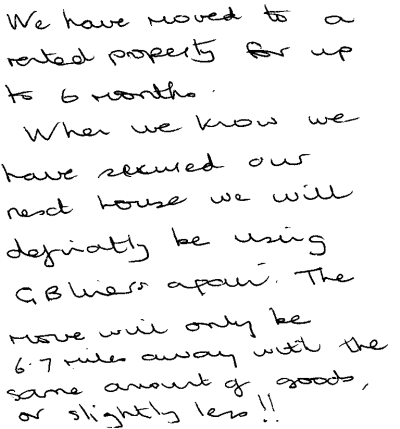 We have moved to a
rented property for up
to 6 months.
When we know we
have secured our
next house we will
definatly be using
GBliners again. The
move will only be
6.7 miles away with the
same amount of goods,
or slightly less!!